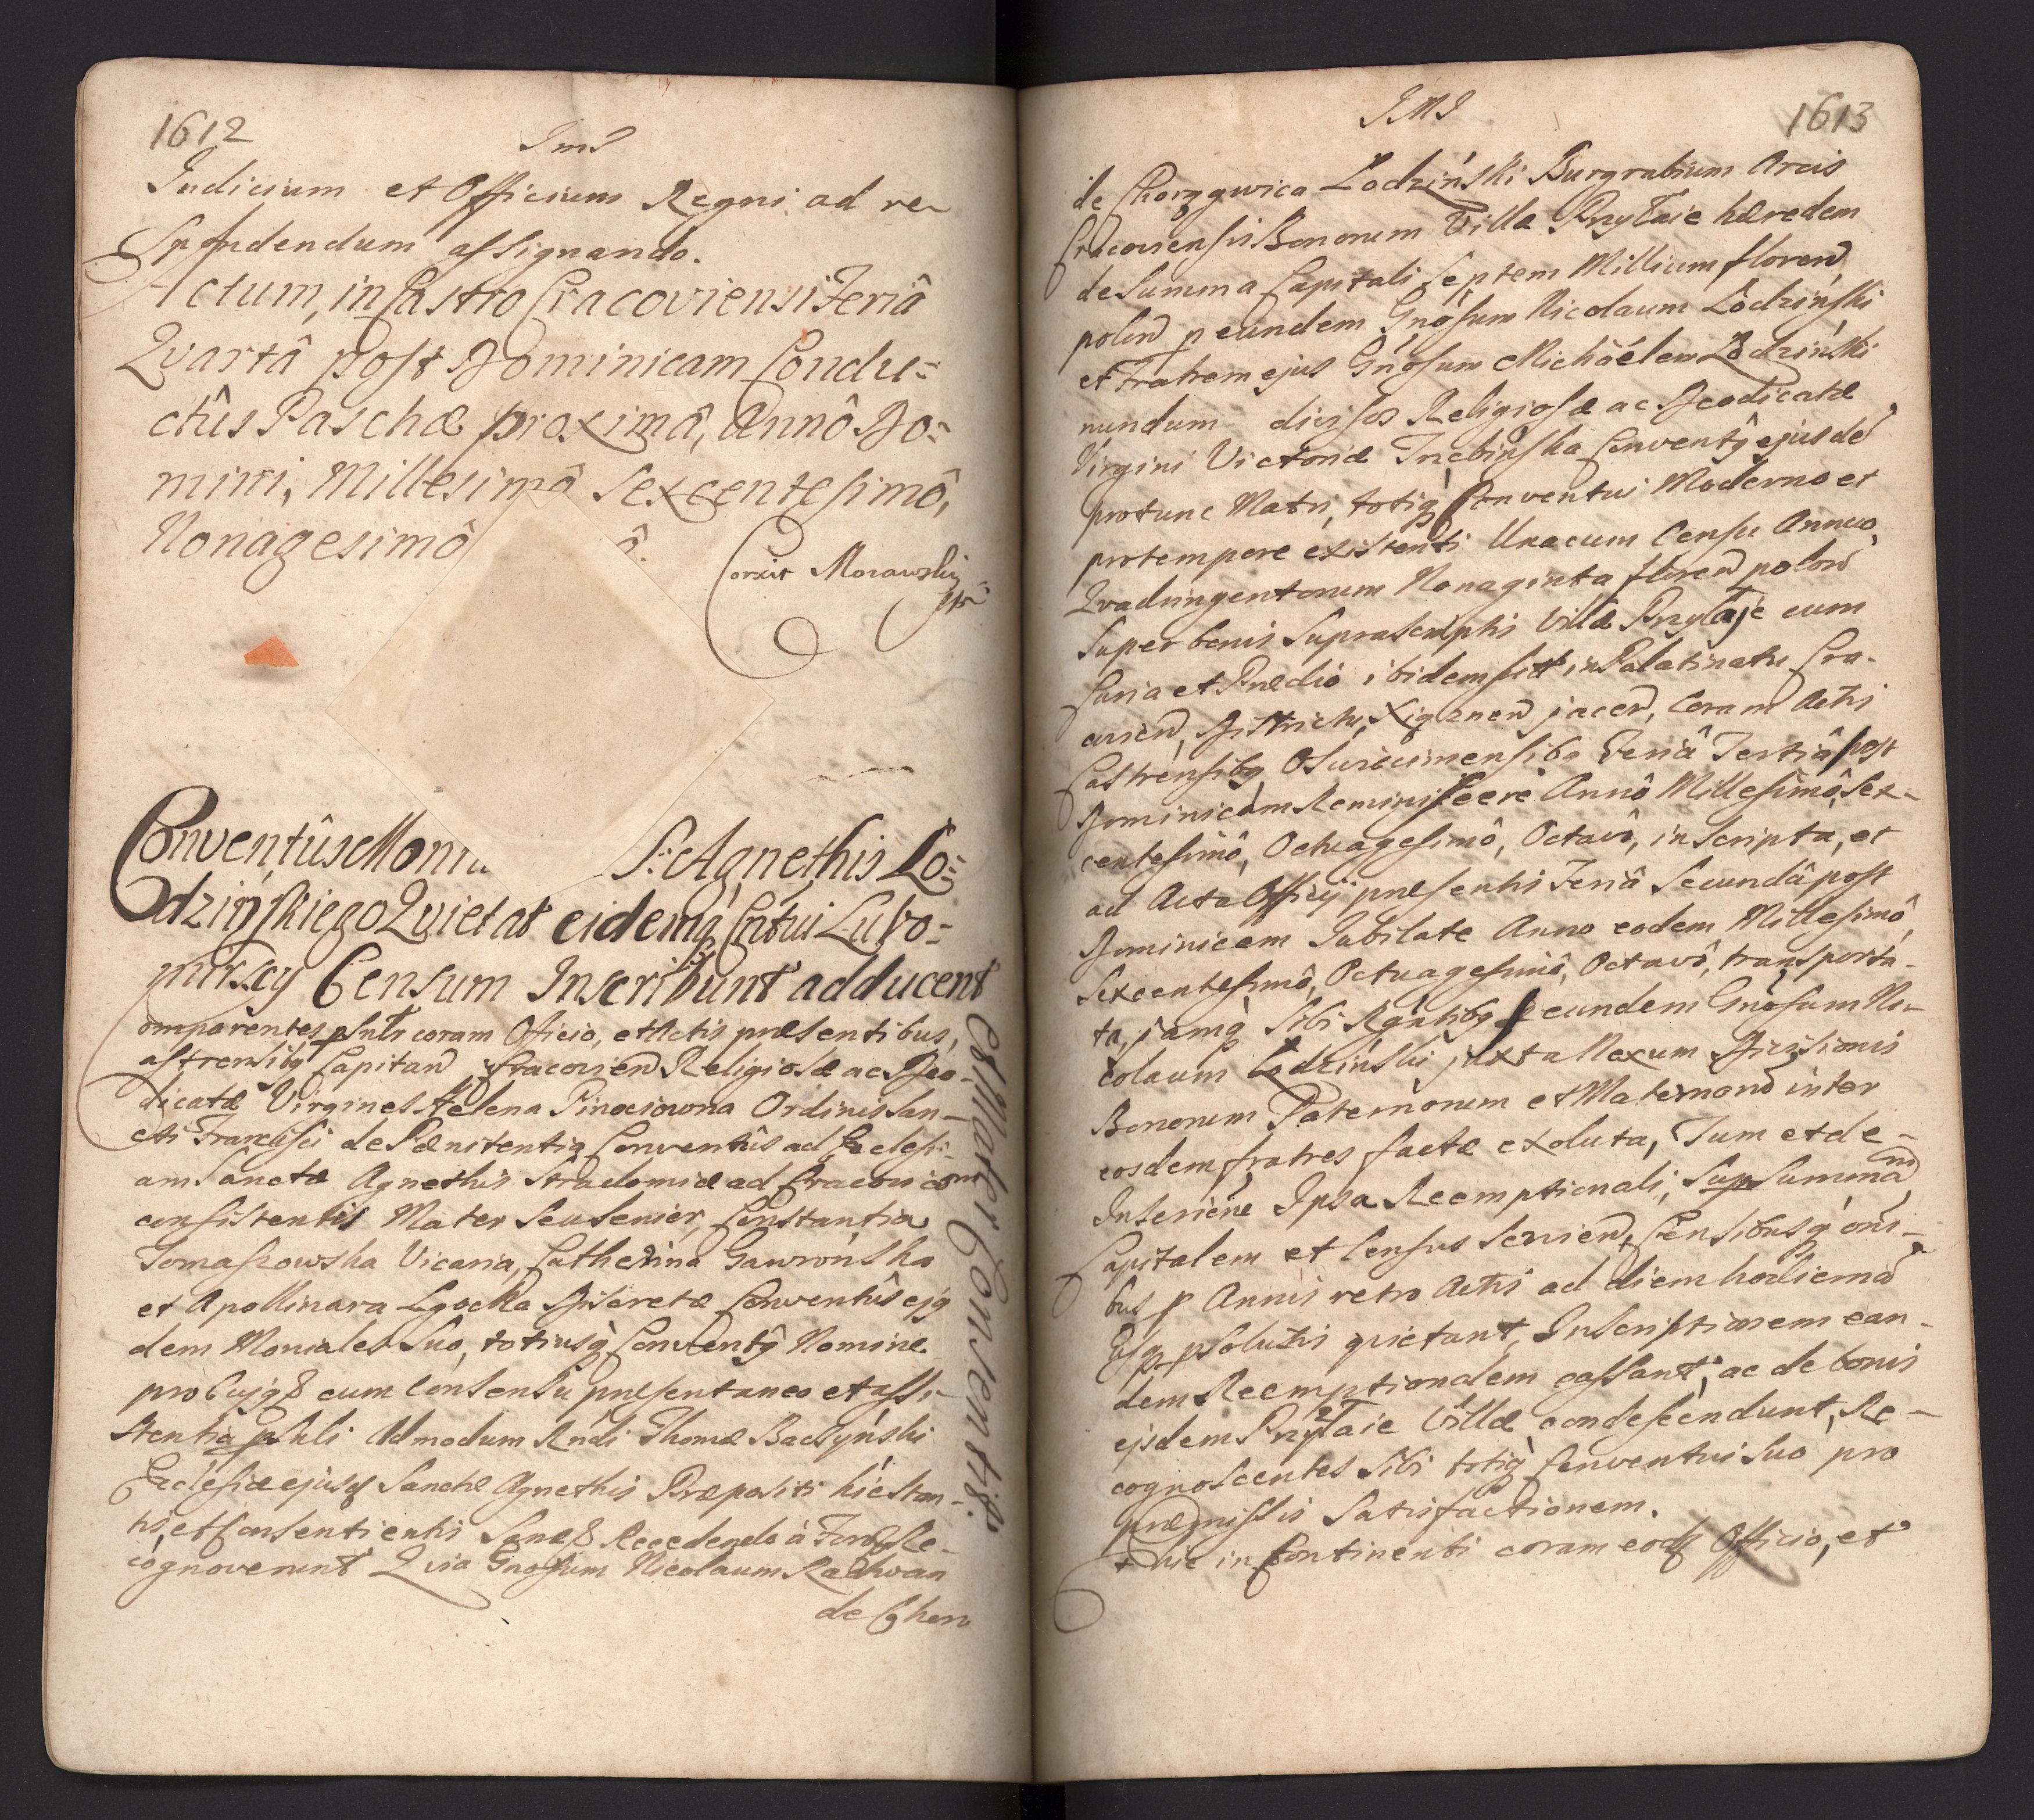 1612
JmJ
Judicium et Officium Regni ad re-
spondendum assignando.
Actum, in Castro Cracoviensi Feriâ
Qvartâ post Dominicam Condu=
ctûs Paschæ proximâ, Annô Do=
mini, Millesimô Sexcentesimô,
Nonagesimô ô.
Corexit Morawski
Conventûs Monia S: Agnethis Ło=
dzińskiego Qvietat eidemq́ Cntui Lubo=
mirscy Censum Inscribunt adducent
Comparentes psnlr coram Officio, et Actis præsentibus,
Castrensibg Capitan Cracovien Religiosæ ac Deo-
dicatæ Virgines Helena Pinociowna Ordinis San-
cti Francisci de Pænitentia Conventûs ad Ecclesi-
am Sanctæ Agnethis Stradomiæ ad Cracoviam
consistentis Mater seu Senior, Constantia
Tomaszowska Vicaria, Catherina Gawrońska
et Apollinara Lgocka Discretæ Conventûs ejg
dem Moniales suo, totiusq́ Conventg Nomine
pro cujg cum Consensu præsentaneo et assi-
stentia psnli Admodum Rndi Thomæ Baczyński
Ecclesiæ ejusd Sanctæ Agnethis Præpositi hic stan-
tis, et Consentientis Sanæ Recedendo à Foro Re-
cognoverunt Qvia Gnosum Nicolaum Radwan
de Chorz
est Mater Consentiss.
JMJ
1613
de Chorzgwica Łodzinski Burgrabium Arcis
Cracoviensis Bonorum Villæ Przytaie hæredem
de Summa Capitali septem Millium floren
polon p eundem Gnosum Nicolaum Łodzinski
et Fratrem ejus Gnosum Michäelem Łodzinski
nundum divisos Religiosæ ac Deodicatæ
Virgini Victoriæ Trzebinska Conventg ejusde
protunc Matri, totiq́ Conventui Moderno et
protempore existenti Unacum Censu Annuo
Qvadringentorum Nonaginta floren polon
super bonis suprascriptis Villæ Przytaje cum
Curia et Prædiô ibidem sitt in Palatinatu Cra-
covien, Districtu Xiąznen jacen, Coram Actis
Castrensibg Oswiecimensibg Feriâ Tertiâ post
Dominicam Reminiscere Annô Millesimô, Sex-
centesimô, Octuagesimô, Octavô, inscripta, et
ad Acta Officij præsentis Feriâ Secundâ post
Dominicam Jubilate Anno eodem Millesimô,
Sexcentesimô, Octuagesimô, Octavô, transporta-
ta, jamq́ sibi Rgntibg p eundem Gnosum Ni-
colaum Łodzinski juxta Nexum Divisionis
Bonorum Paternorum et Maternorum inter
eosdem fratres factæ exoluta, Tum et de
Inscriene Ipsa Reemptionali, Sup Summa
Capitalem et Census Servien, Censibusq́ oni-
bus p Annis retro Actis ad diem hodierna
usq psolutis quietant, Inscriptionem ean-
dem Reemptionalem cassant, ac de bonis
ejsdem Przytaie Villæ condescendunt, Re-
cognoscentes sibi totiq́ Conventui suo pro
præmissis satisfactionem.
Et hic in Continenti coram eod Officio, et